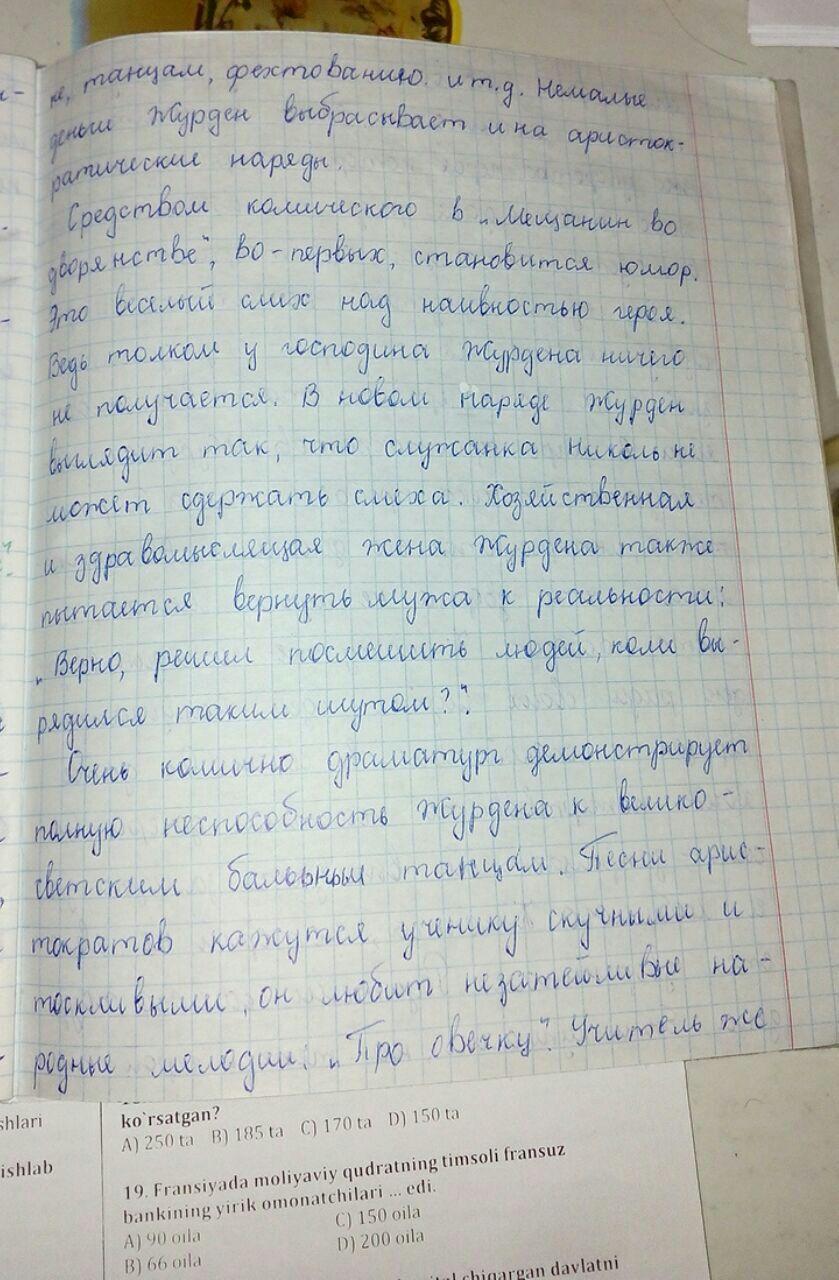 не, танцам, фехтованию и т.д. Немалые
деньги Журден выбрасывает и на аристок-
ратические наряды.
Средством комического в „Мещанин во
дворянстве", во-первых, становится юмор.
Это веселый смех над наивностью героя.
Ведь толком у господина Журдена ничего
не получается. В новом наряде Журден
выглядит так, что служанка Николь не
может сдержать смеха. Хозяйственная
и здравомыслящая жена Журдена также
пытается вернуть мужа к реальности:
„Верно, решил посмешить людей, коли вы-
рядился таким шутом?".
Очень комично драматург демонстрирует
полную неспособность Журдена к велико-
светским бальным танцам. Песни арис-
тократов кажутся ученику скучными и
тоскливыми, он любит незатейливые на-
родные мелодии: „Про овечку". Учитель же
shlari
ishlab
ko`rsatgan?
A) 250 ta B) 185 ta C) 170 ta D) 150 ta
19. Fransiyada moliyaviy qudratning timsoli fransuz
bankining yirik omonatchilari ... edi.
A) 90 oila C) 150 oila
B) 66 oila D) 200 oila
chiqargan davlatni